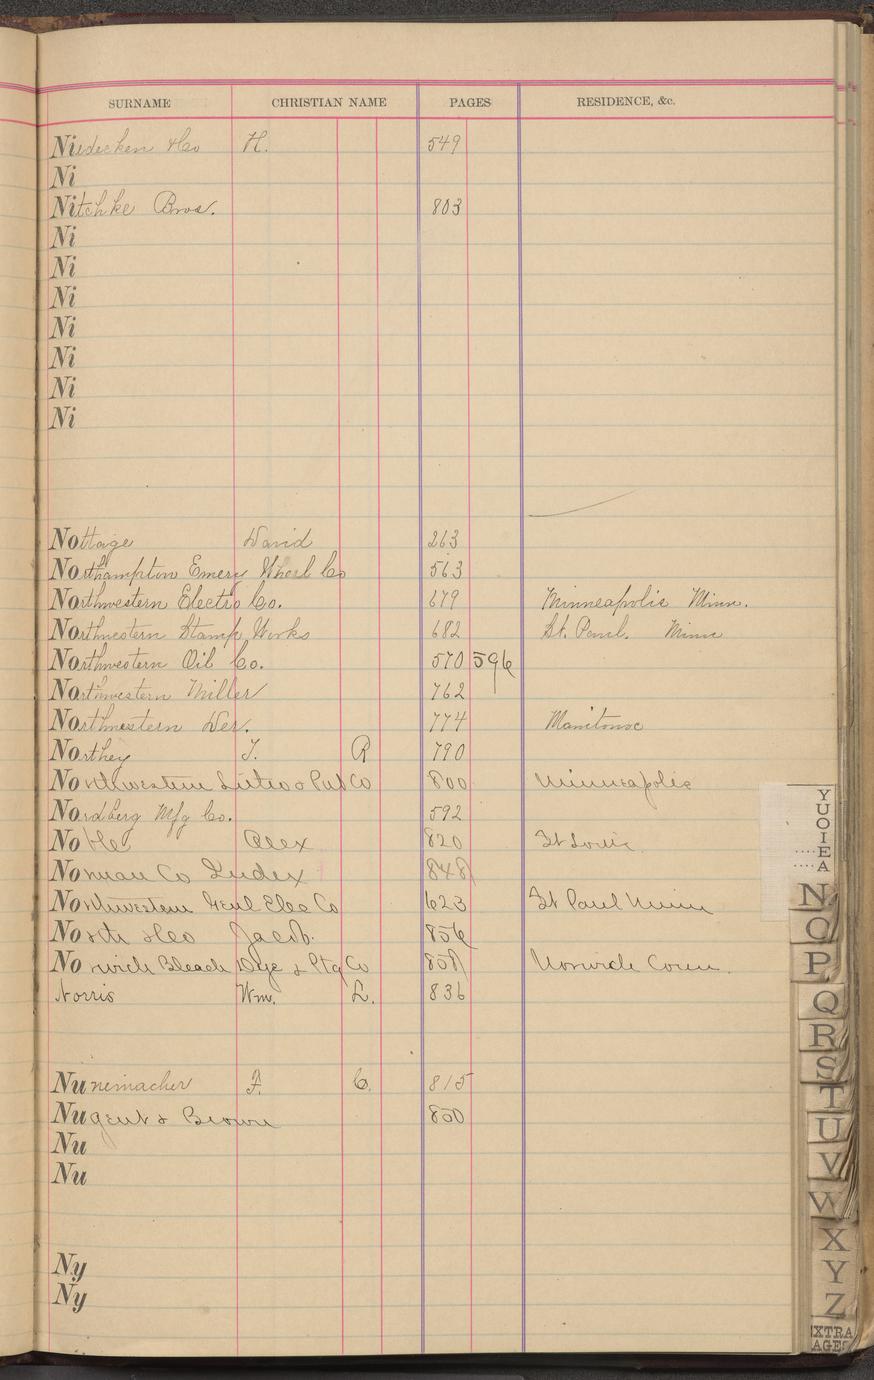 SURNAME CHRISTIAN NAME PAGES RESIDENCE, &c.
Niedecken & Co H. 549
Ni
Nitchke Bros. 803
Ni
Ni
Ni
Ni
Ni
Ni
Ni
Nottage David 263
Northampton Emery Wheel Co 563
Northwestern Electro Co. 679 Minneapolis Minn.
Northwestern Stamp Works 682 St. Paul. Minn
Northwestern Oil Co. 570 596
Northwestern Miller 762
Northwestern Der. 774 Manitowoc
Northey T. R 790
Northwestern Litho & Pub Co 800 Minneapolis
Nordberg Mfg Co. 592
Noble Alex 820 St Louis
Norman Co Index 848
Northwestern Genl Elec Co 623 St Paul Minn
North & Co Jacob. 856
Norwich Bleach Dye & Ptg Co 858 Norwich Conn.
Norris Wm. L. 836
Nunnemacher F. C. 815
Nugent & Brown 850
Nu
Nu
Ny
Ny
Y
U
O
I
E
A
N
O
P
Q
R
S
T
U
V
W
X
Y
Z
EXTRA
AGES